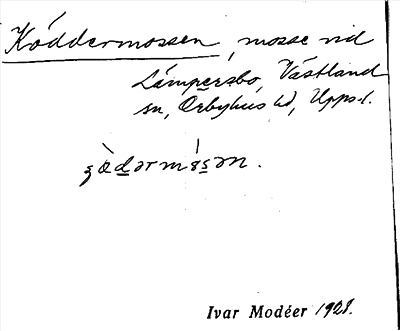 Köddermossen, mosse vid
Lámpersbo, Västland
sn, Örbyhus hd, Upps.l.
Ivar Modéer 1928.